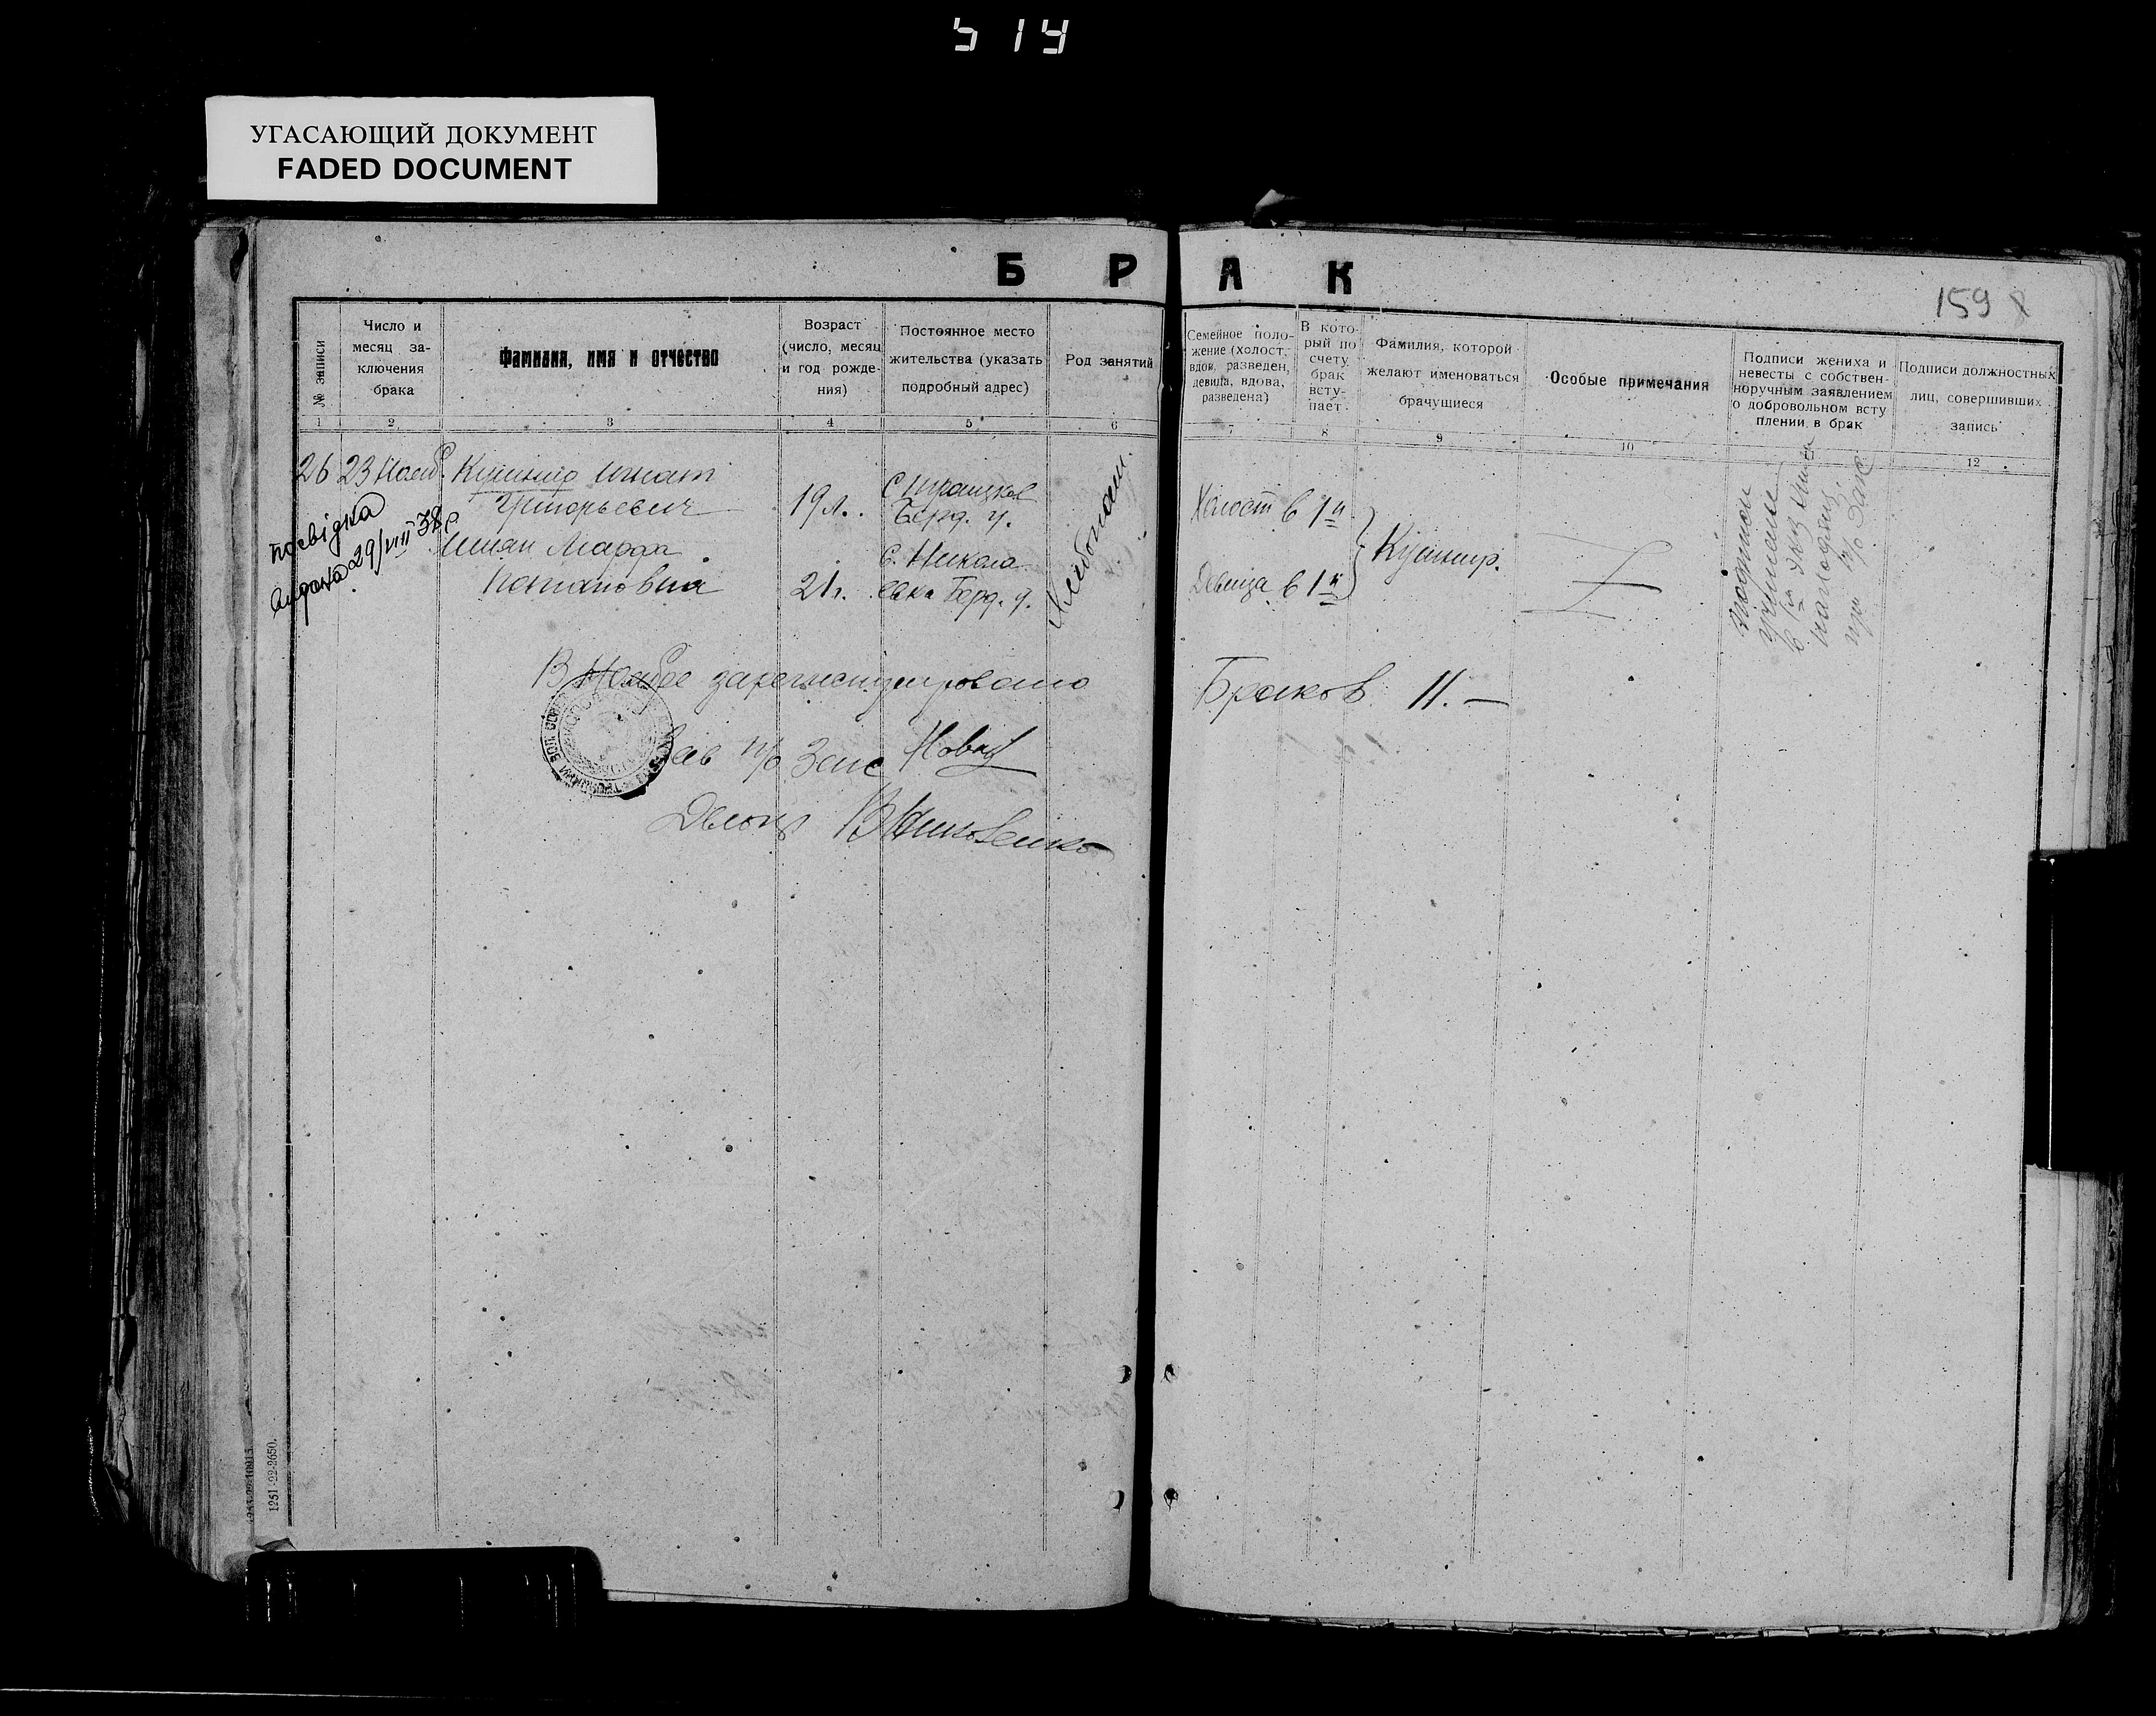 514
УГАСАЮЩИЙ ДОКУМЕНТ
FADED DOCUMENT
Б Р А К
159
№ записи
Число и
месяц за-
ключения
брака
Фамилия, имя и отчество
Возраст
(число, месяц
и год рожде-
ния)
Постоянное место
жительства (указать
подробный адрес)
Род занятий
Семейное поло-
жение (холост,
вдов, разведен,
девица, вдова,
разведена)
В кото-
рый по
счету
брак
всту-
пает
Фамилия, которой
желают именоваться
брачущиеся
Особые примечания
Подписи жениха и
невесты с собствен-
норучным заявлением
о добровольном всту
плении в брак
Подписи должностных
лиц, совершивших
запись
1 2 3 4 5 6 7 8 9 10 11 12
26 23 Нояб. Кушнир Игнат
Григорьевич
19 л.
С Троицкое
Берд. у.
Холост в 1й
посвідка
видана 29/VIII 38
Марфа
Потаповна
21 г.
с. Никола-
евка Берд. у.
Хлебопаш.
Девица в 1й
Кушнир.
подписи
учинены
в 1м экз
при п/о Загс
В Ноябре зарегистрировано
Браков 11. —
Зав п/о Загс Новак
Делопр
1251-22-2650.